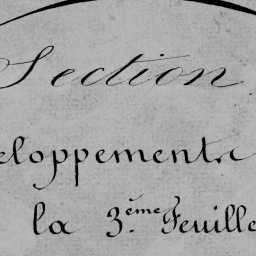 Section
eloppement
la 3.ème Feuille